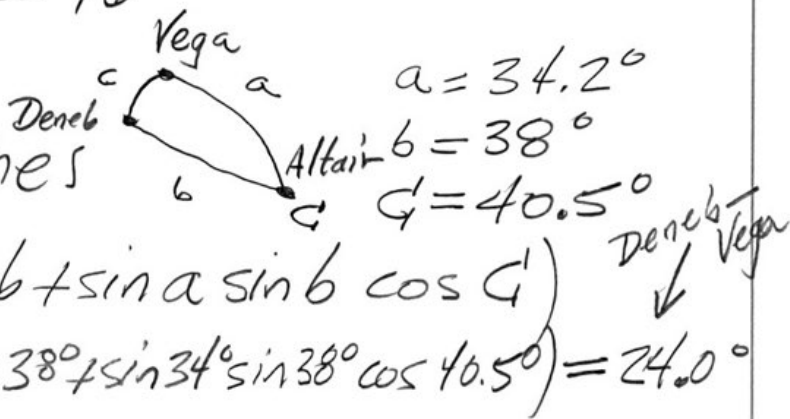 Vega
c
a
a = 34.2°
Deneb
b = 38°
Altair
nes
b
C
C = 40.5°
Deneb-
Vega
b + sin a sin b cos C)
38° + sin 34° sin 38° cos 40.5°) = 24.0°